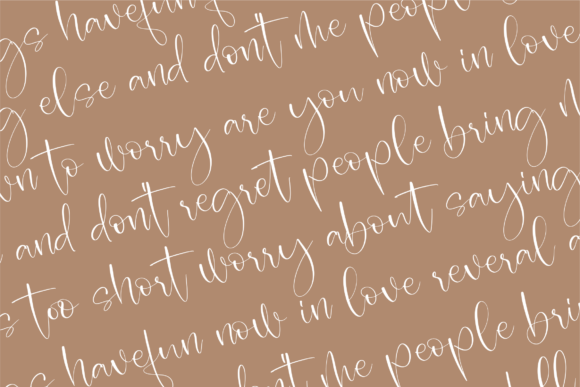 gs havefun
g else and dont the people
wn to worry are you now in love
and dont regret people bring n
s too short worry about saying
s havefun now in love reveral a
dont the people bri